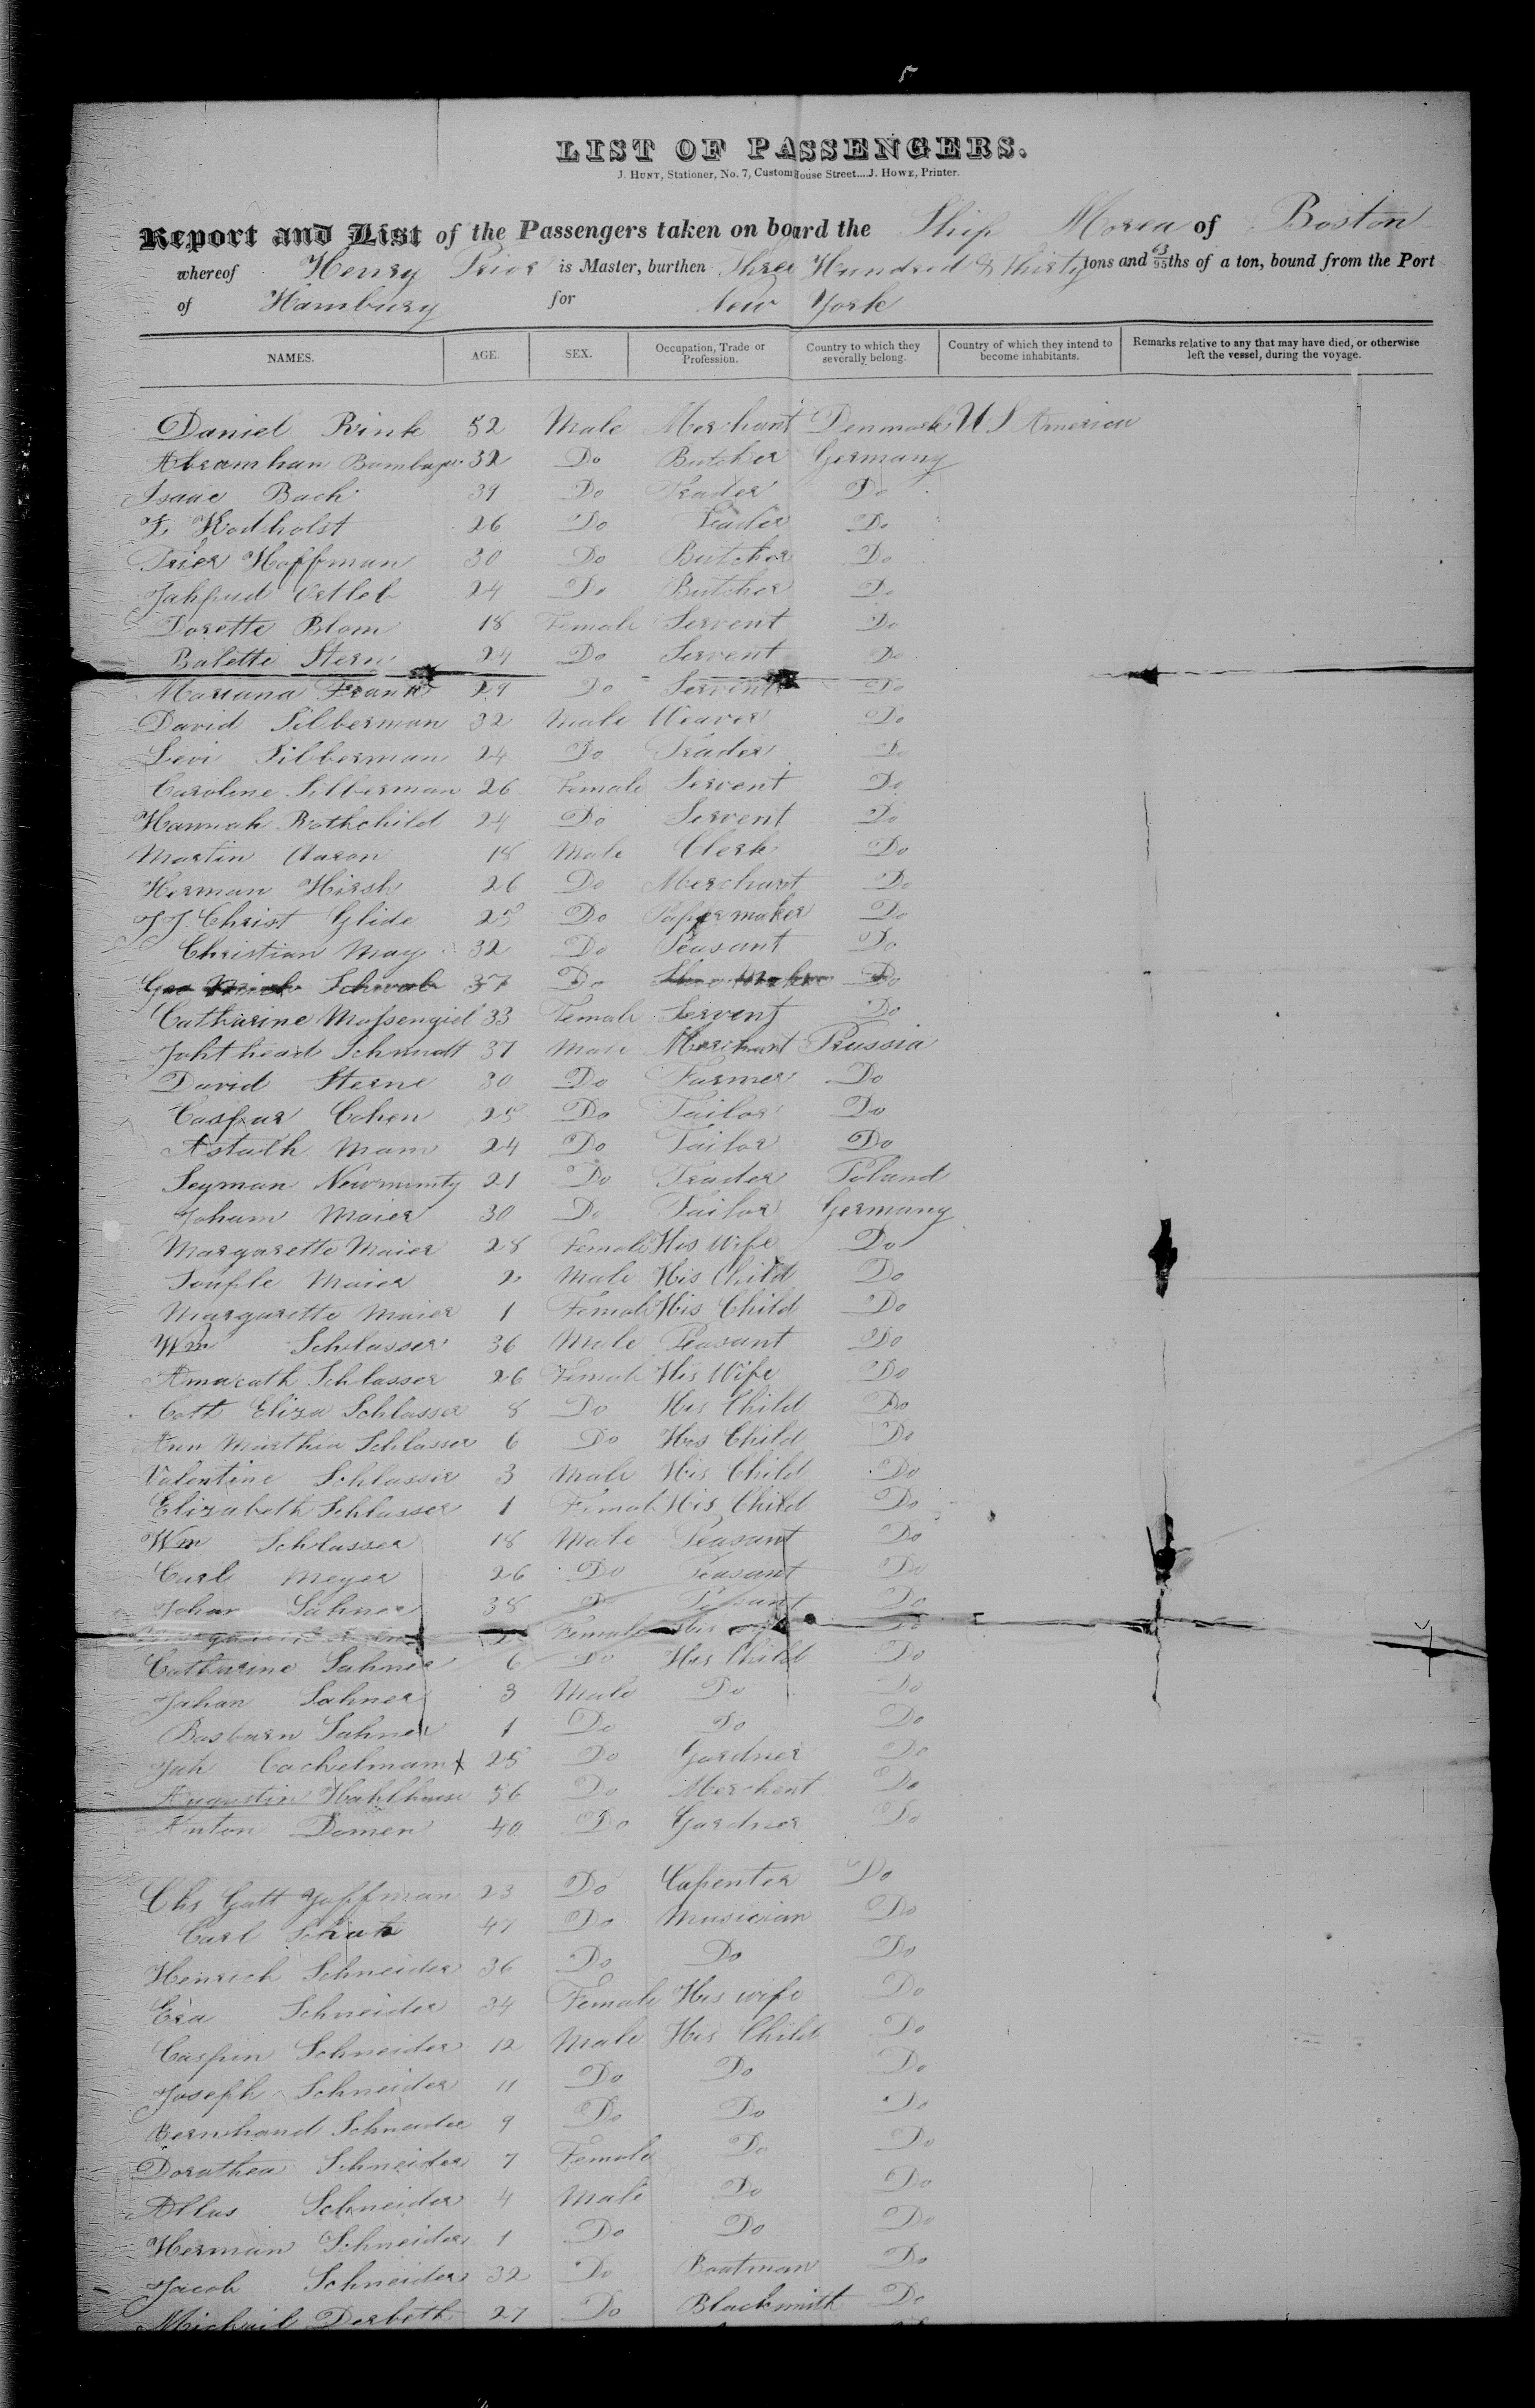 5
LIST OF PASSENGERS.
J. HUNT, Stationer, No. 7, Custom House Street....J. HOWE, Printer.
Report and List of the Passengers taken on board the Ship Morea of Boston
whereof Henry Prior is Master, burthen Three Hundred & Thirty tons and 63/95ths of a ton, bound from the Port
of Hamburg for New York
NAMES. AGE. SEX. Occupation, Trade or Profession. Country to which they severally belong. Country of which they intend to become inhabitants. Remarks relative to any that may have died, or otherwise left the vessel, during the voyage.
Daniel Rink 52 Male Merchant Denmark U S America
Abramhan 32 Do Butcher Germany
Isaac Bach 39 Do Trader Do
Hodholst 26 Do Trader Do
Trier Hoffman 30 Do Butcher Do
24 Do Butcher Do
Dorette Blom 18 Female Servent Do
Balette Stern 24 Do Servent Do
Mariana Frank 29 Do Servent Do
David Silberman 32 Male Weaver Do
Levi Silberman 24 Do Trader Do
Caroline Silberman 26 Female Servent Do
Hannah Rothchild 24 Do Servent Do
Martin Aaron 18 Male Clerk Do
Herman Hirsh 26 Do Merchant Do
J J Christ Glide 25 Do Papper maker Do
Christian May 32 Do Peasant Do
Geo Schwab 37 Do Shoe Maker Do
Catharine Massengiel 33 Female Servent Do
Schmidt 37 Male Merchant Prussia
David Sterne 30 Do Farmer Do
Caspar Cohen 25 Do Tailor Do
Mam 24 Do Tailor Do
Seyman 21 Do Trader Poland
Joham Maier 30 Do Tailor Germany
Margarette Maier 28 Female His Wife Do
Maier 2 Male His Child Do
Margarette Maier 1 Female His Child Do
Wm Schlasser 36 Male Peasant Do
Schlasser 26 Female His Wife Do
Cath Eliza Schlasser 8 Do His Child Do
Ann Marthia Schlasser 6 Do His Child Do
Valentine Schlasser 3 Male His Child Do
Elizabeth Schlasser 1 Female His Child Do
Wm Schlasser 18 Male Peasant Do
Carl Meyer 26 Do Peasant Do
Johan Sahner 38 Do Peasant Do
Female His Do
Catharine Sahner 6 Do His Child Do
Johan Sahner 3 Male Do Do
Sahner 1 Do Do Do
Joh Cachelmann 25 Do Gardner Do
Augustin 36 Do Merchent Do
Anton Domen 40 Do Gardner Do
Chs Gott 23 Do Capenter Do
Carl 47 Do Musician Do
Henrich Schneider 36 Do Do Do
Eva Schneider 34 Female His wife Do
Caspin Schneider 12 Male His Child Do
Joseph Schneider 11 Do Do Do
Bernhand Schneider 9 Do Do Do
Dorathea Schneider 7 Female Do Do
Schneider 4 Male Do Do
Herman Schneider 1 Do Do Do
Jacob Schneider 32 Do Boatman Do
Michail Derbeth 27 Do Blacksmith Do